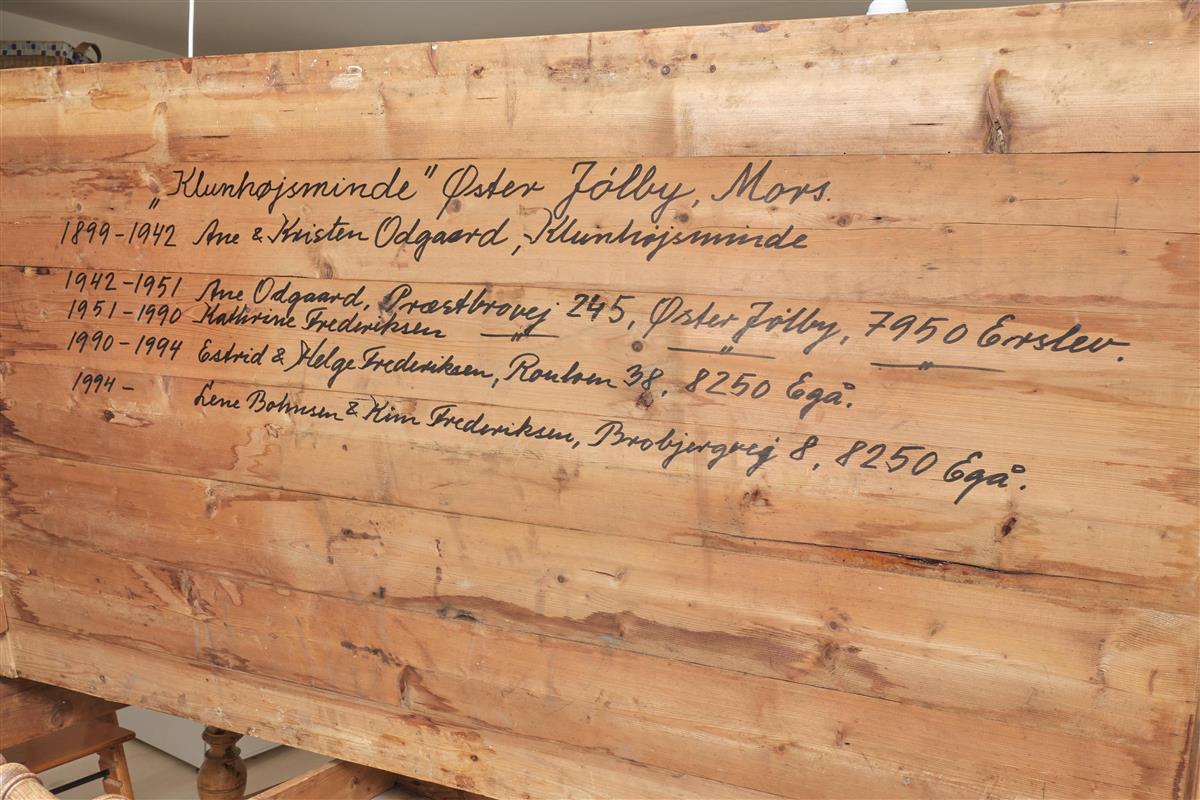 „Klunhøjsminde" Øster Jølby, Mors.
1899-1942 Ane & Kristen Odgaard, Klunhøjsminde
1942-1951 Ane Odgaard, Præstbrovej 245, Øster Jølby, 7950 Erslev.
1951-1990 Kathrine Frederiksen —„— —„— —„—
1990-1994 Estrid & Helge Frederiksen, 38, 8250 Egå.
1994- Lene Bohnsen & Kim Frederiksen, Brobjergvej 8, 8250 Egå.